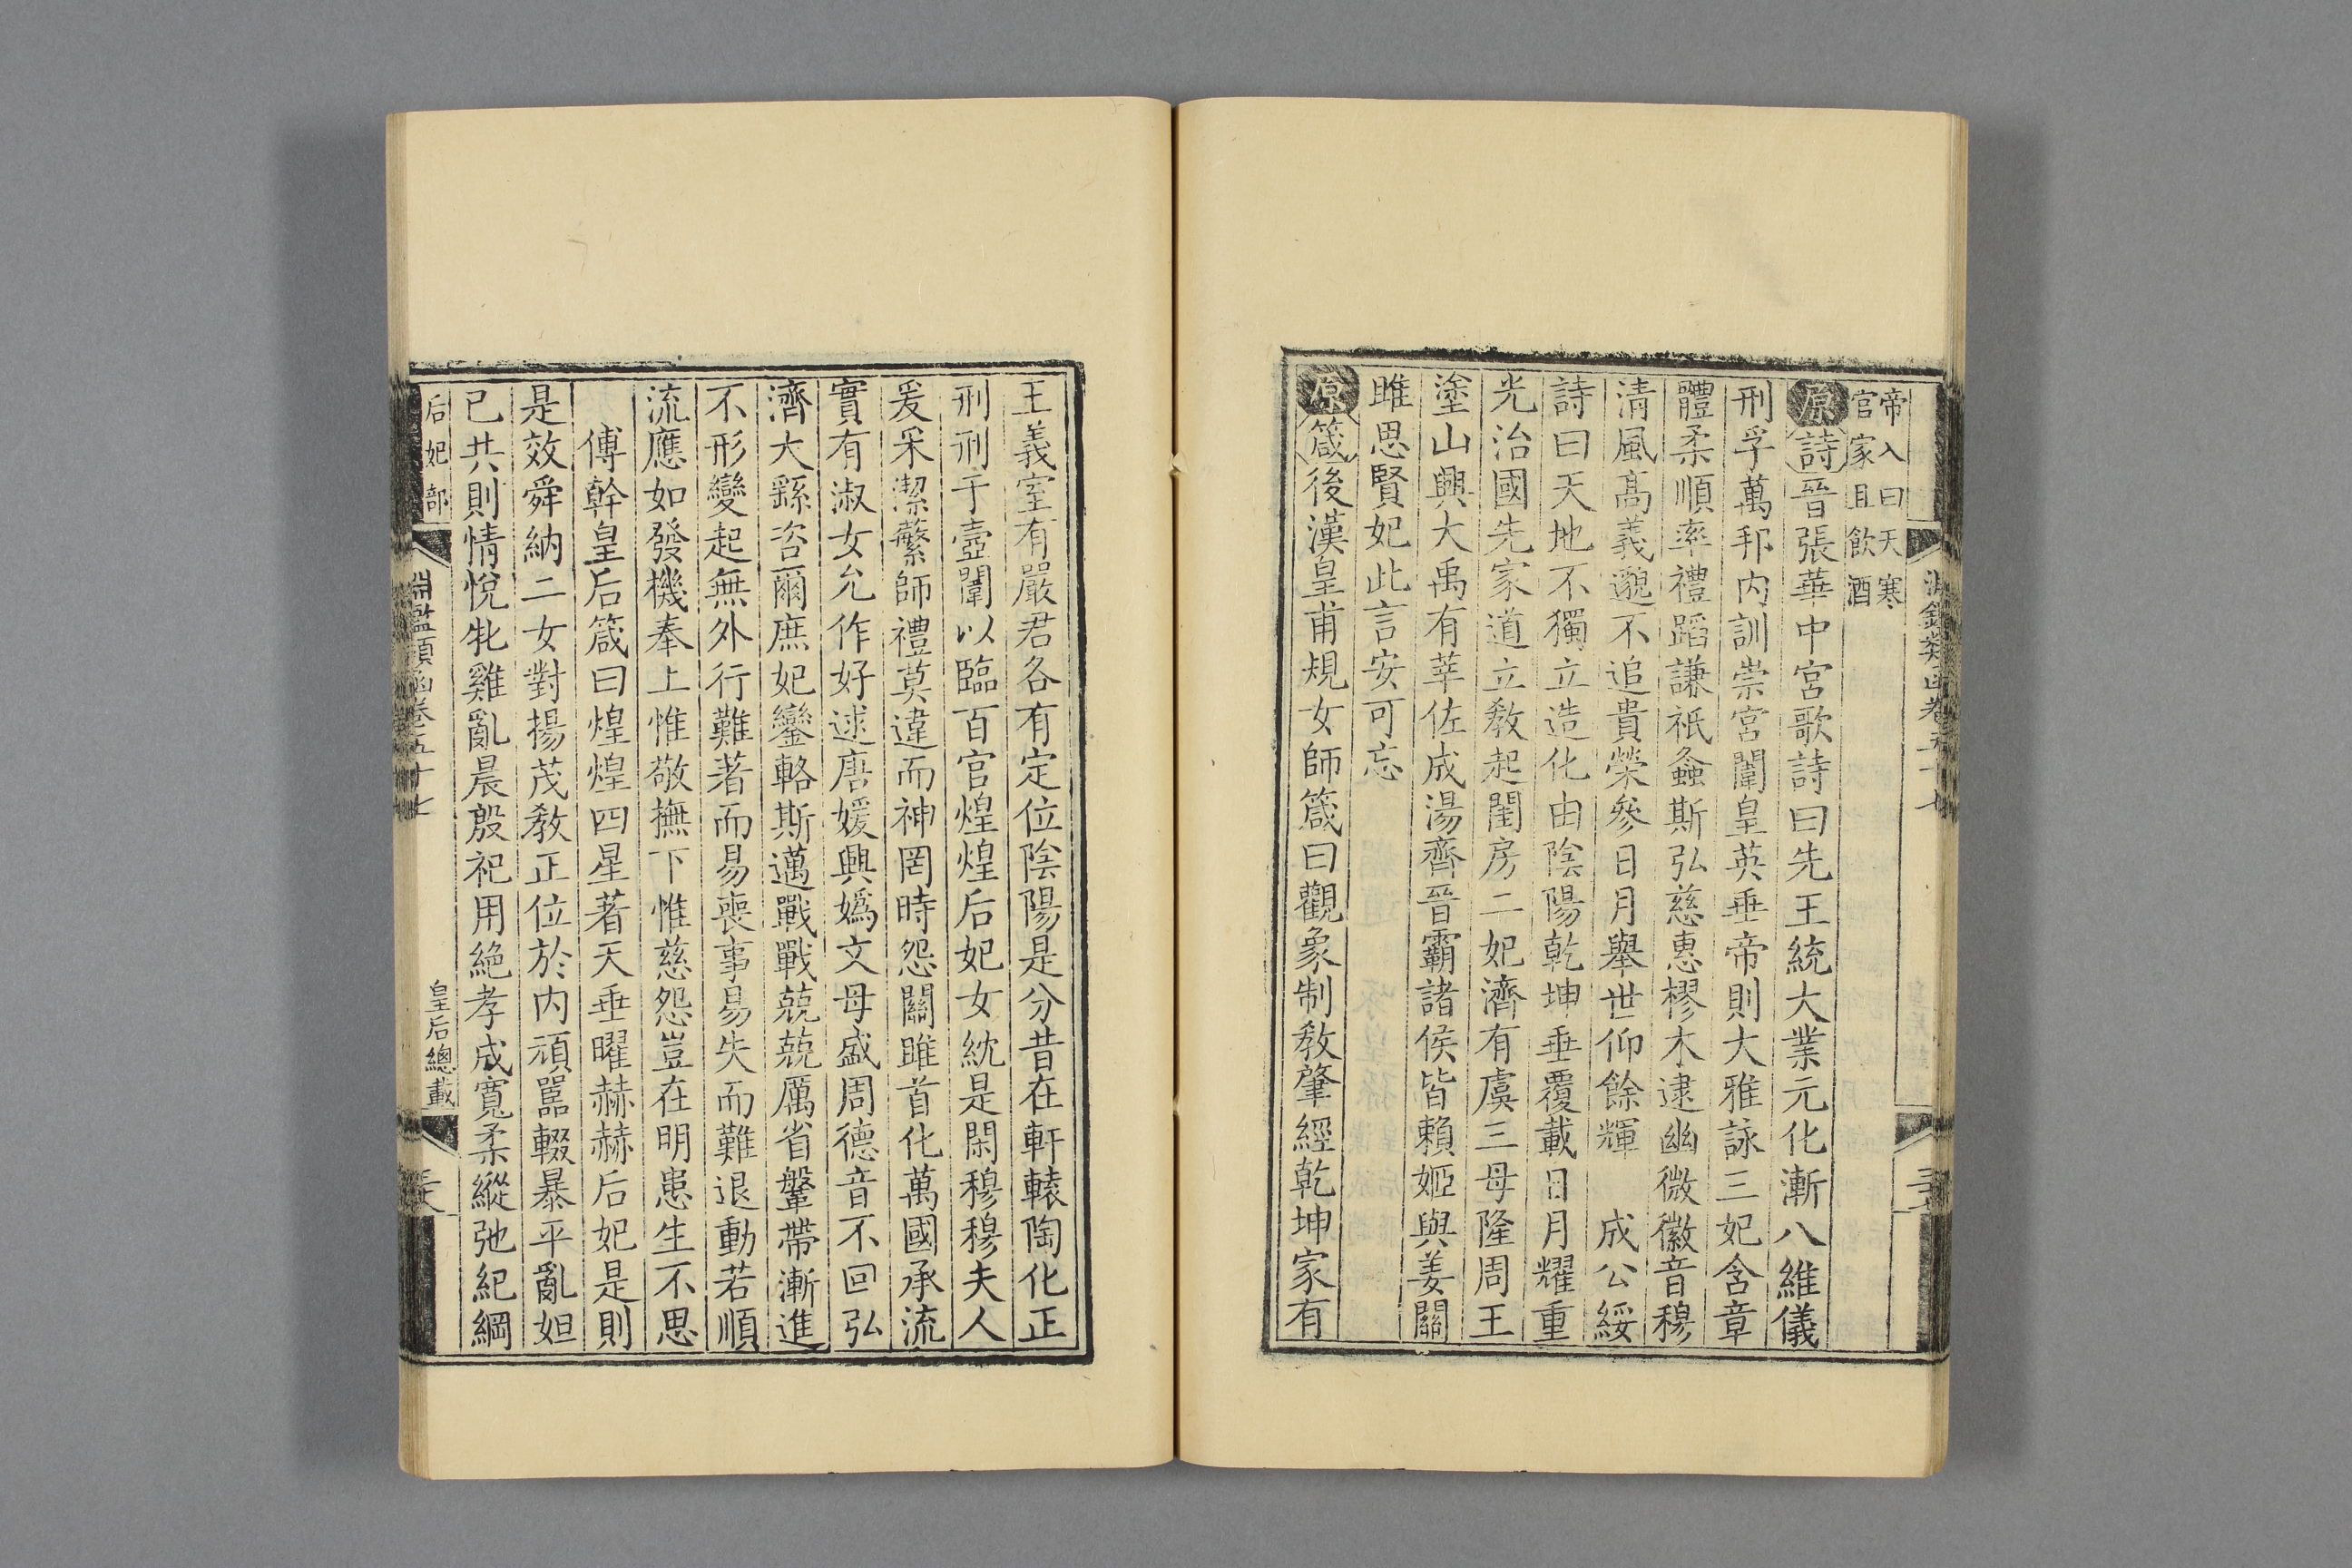 帝入曰天寒
官家且飲酒
原詩晉張華中宮歌詩曰先王統大業元化漸八維儀
刑孚萬邦內訓崇宮闈皇英垂帝則大雅詠三妃含章
體柔順率禮蹈謙祗螽斯弘慈惠樛木逮幽微徽音穆
清風高義邈不追貴榮參日月舉世仰餘輝　成公綏
詩曰天地不獨立造化由陰陽乾坤垂覆載日月耀重
光治國先家道立教起閨房二妃濟有虞三母隆周王
塗山興大禹有莘佐成湯齊晉霸諸侯皆賴姬與姜關
雎思賢妃此言安可忘
原箴後漢皇甫規女師箴曰觀象制教肇經乾坤家有
王義室有嚴君各有定位陰陽是分昔在軒轅陶化正
刑刑于壼闈以臨百官煌煌后妃女紞是閑穆穆夫人
爰采潔蘩師禮莫違而神罔時怨關雎首化萬國承流
實有淑女允作好逑唐媛興媯文母盛周德音不回弘
濟大繇咨爾庶妃鑾輅斯邁戰戰兢兢厲省鞶帶漸進
不形變起無外行難著而易喪事易失而難退動若順
流應如發機奉上惟敬撫下惟慈怨豈在明患生不思
傅幹皇后箴曰煌煌四星著天垂曜赫赫后妃是則
是效舜納二女對揚茂教正位於內頑嚚輟暴平亂妲
已共則情悅牝雞亂晨殷祀用絕孝成寬柔縱弛紀綱
后妃部
淵鑑類函卷五十七
皇后總載